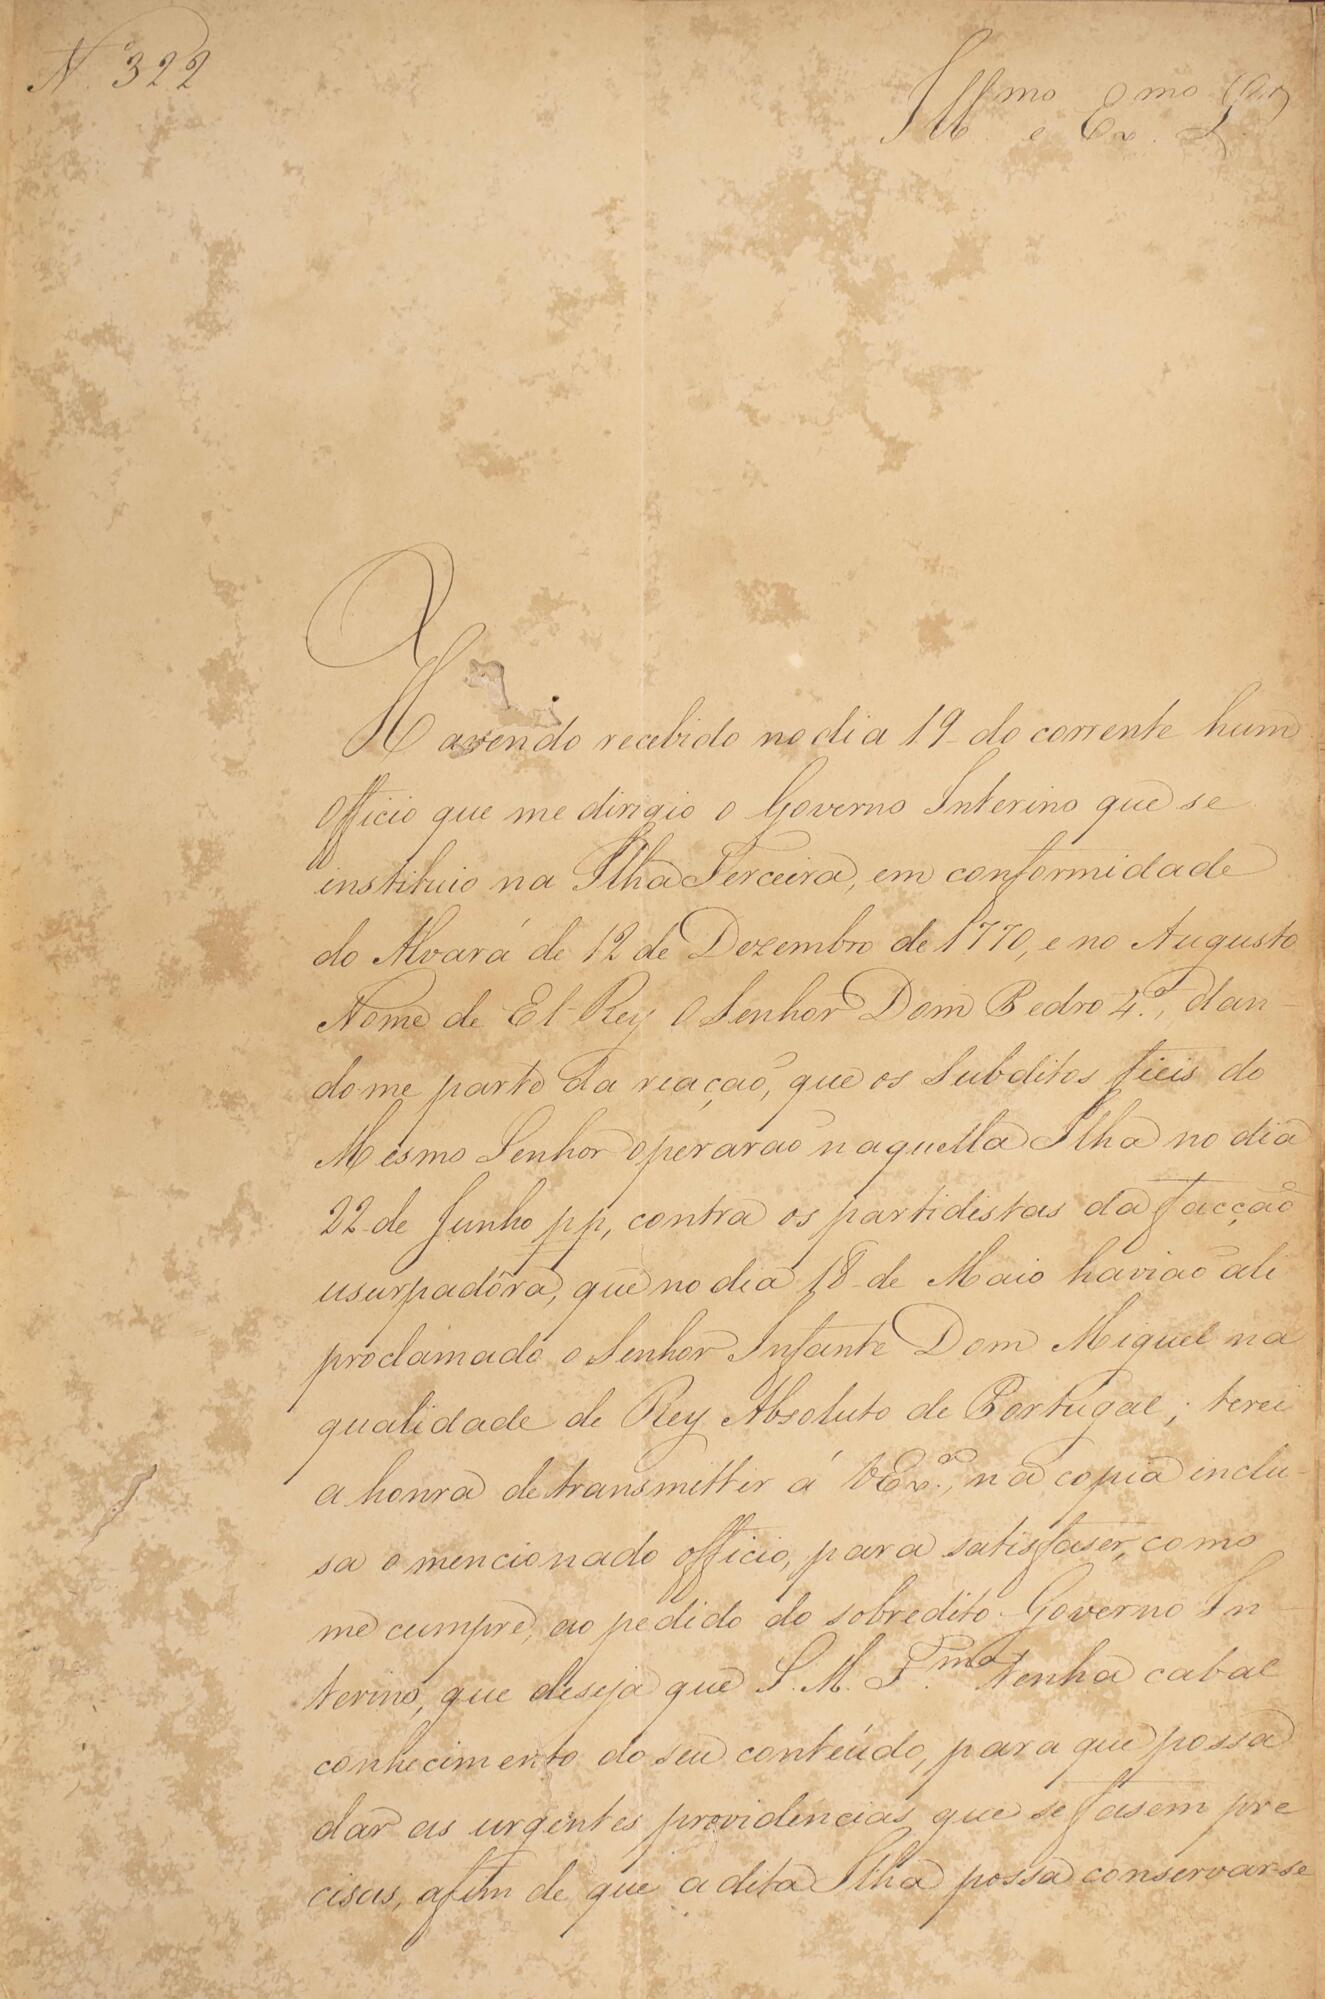 N.º 322
Ill.mo e Ex.mo Snr
Havendo recebido no dia 19 do corrente hum
Officio que me dirigio o Governo Interino que se
instituio na Ilha Terceira, em conformidade
do Alvará de 12 de Dezembro de 1770, e no Augusto
Nome de El-Rey O Senhor Dom Pedro 4.º, dan-
do-me parte da reação, que os Subditos fieis do
Mesmo Senhor operarão naquella Ilha no dia
22 de Junho pp, contra os partidistas da facção
usurpadôra, que no dia 18 de Maio havião ali
proclamado o Senhor Infante Dom Miguel na
qualidade de Rey Absoluto de Portugal; terei
a honra de transmittir á VEx.ª, na copia inclu-
sa o mencionado officio, para satisfaser, como
me cumpre, ao pedido do sobredito Governo In-
terino, que deseja que S. M. F.ma tenha cabal
conhecimento do seu conteúdo, para que possa
dar as urgentes providencias que se fasem pre
cisas, afim de que a dita Ilha possa conservar-se